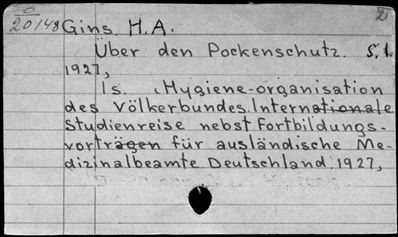 20148 Gins. H.A. 2
Über den Pockenschutz. S. l.
1927,
Is. Hygiene-organisation
des Völkerbundes. Internationale
Studienreise nebst Fortbildungs-
vorträgen für ausländische Me-
dizinalbeamte Deutschland 1927,